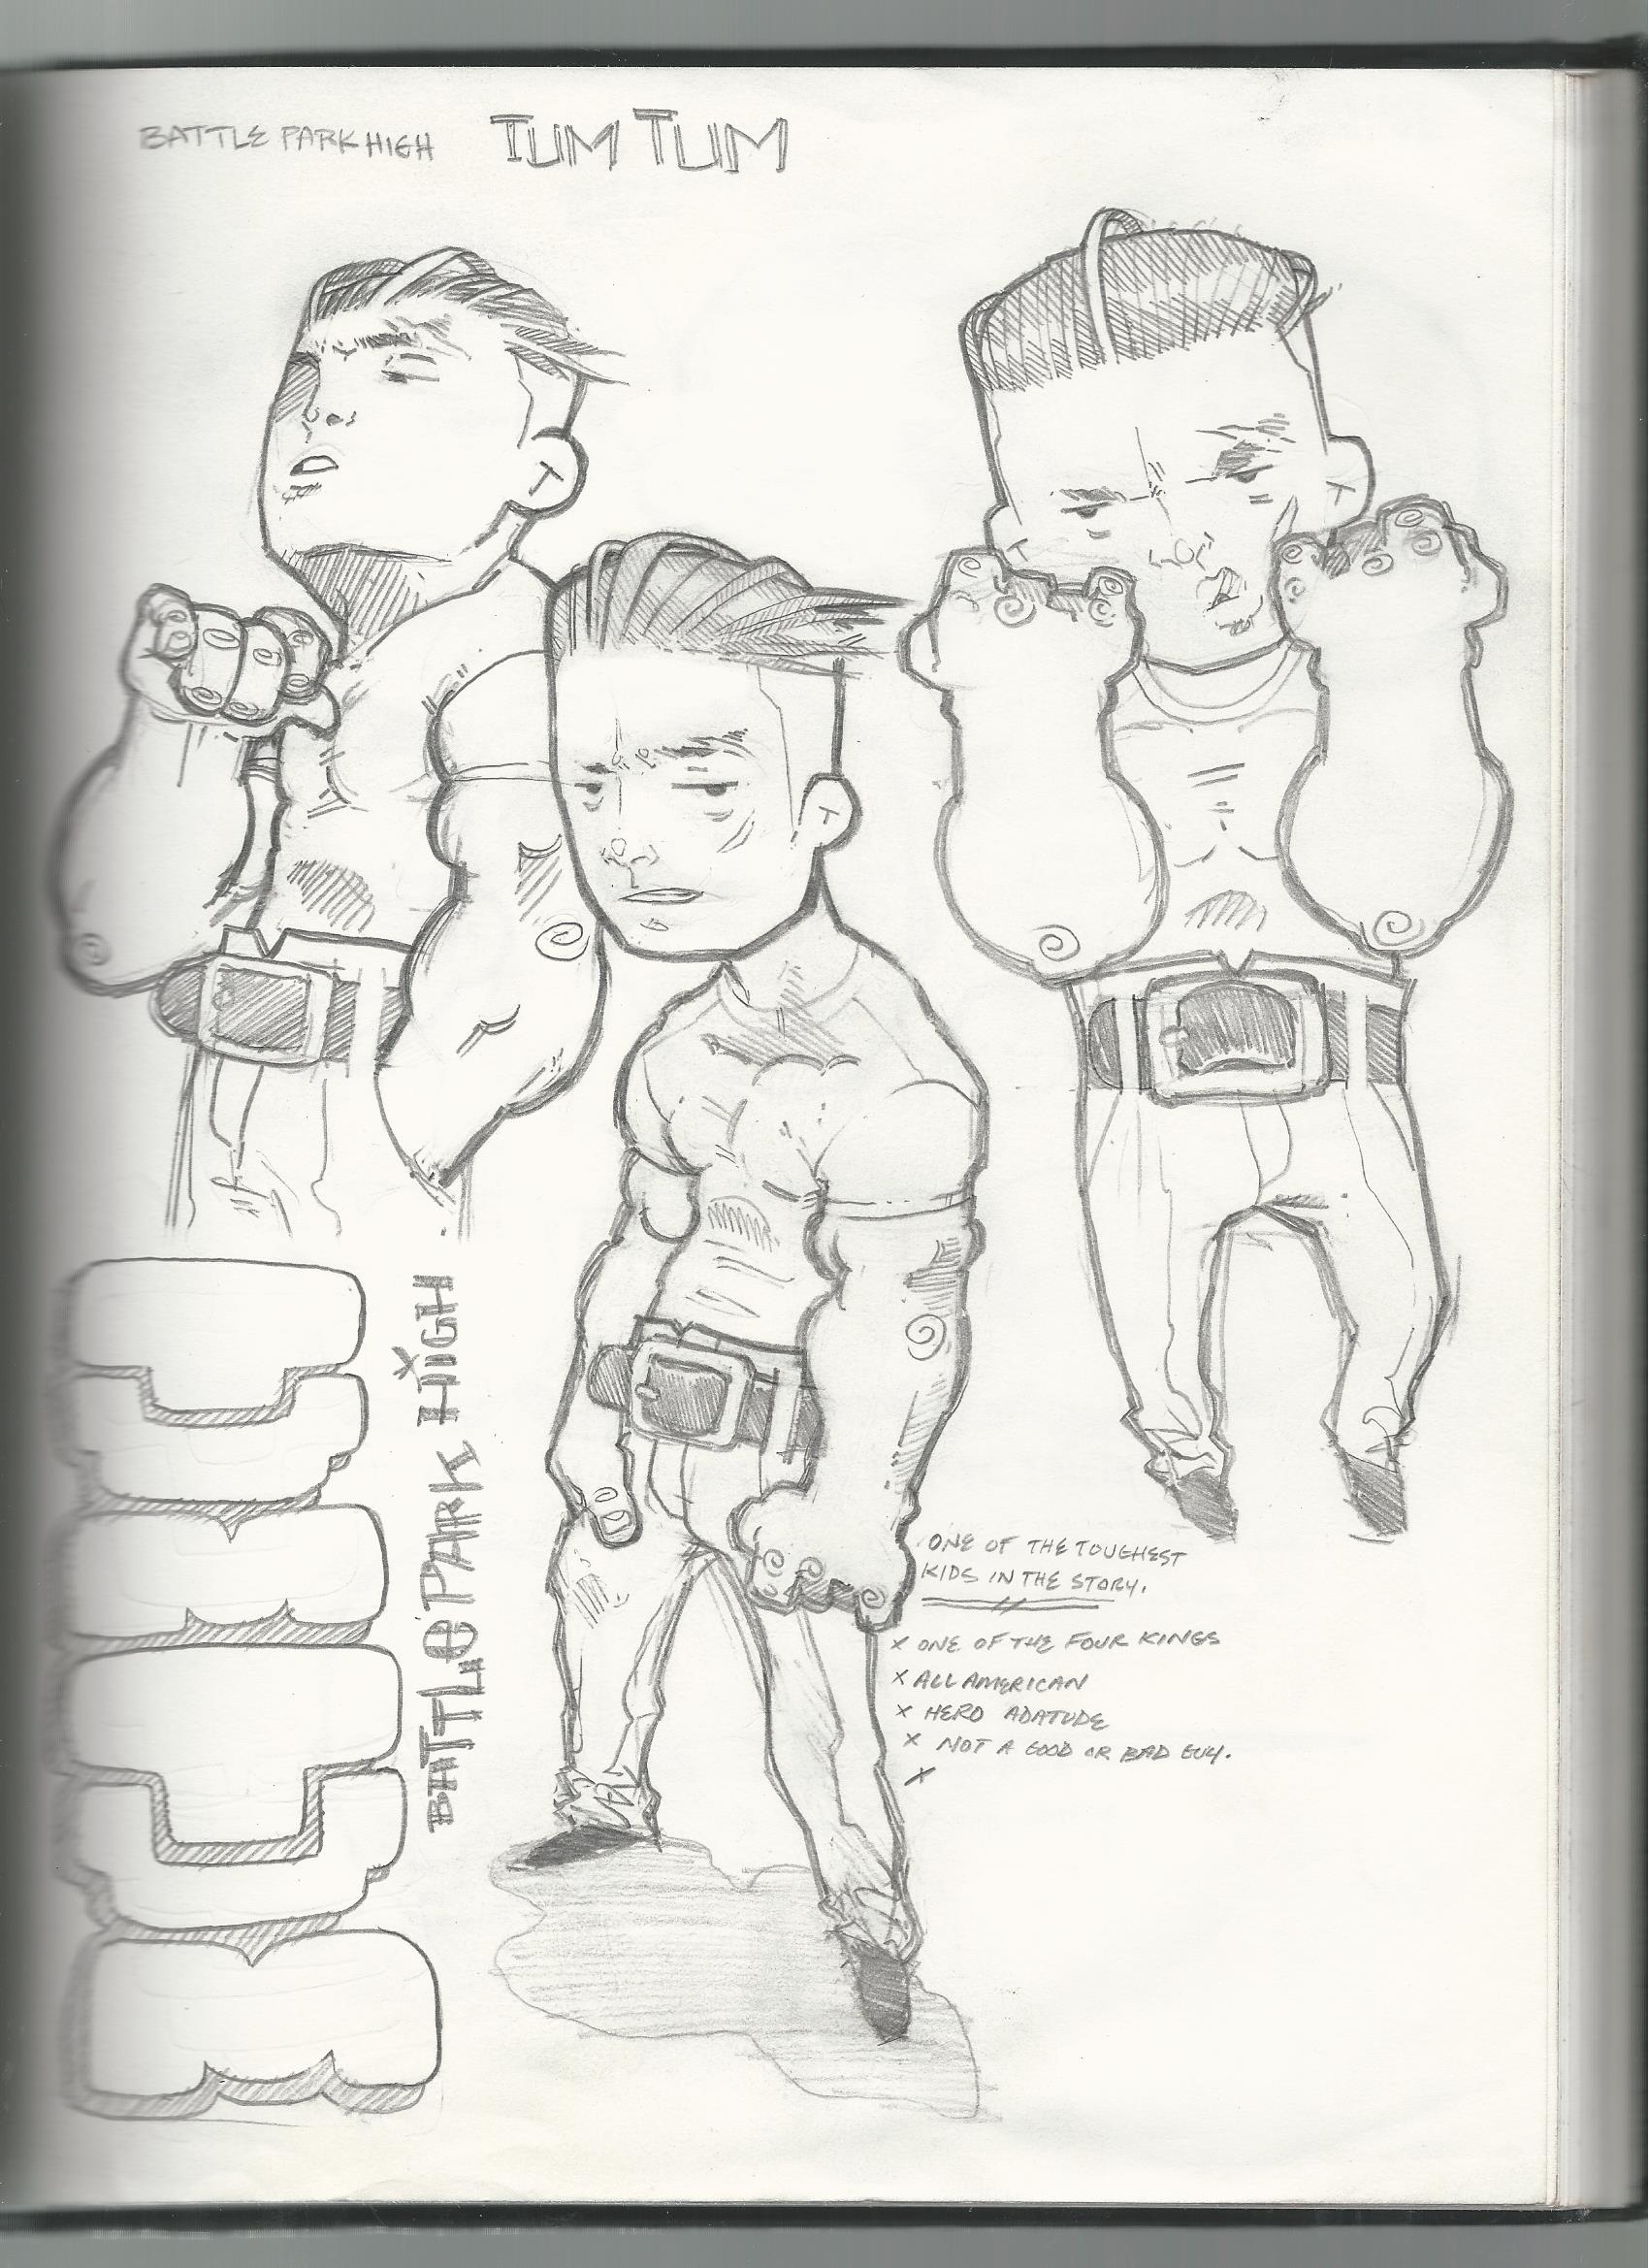 BATTLE PARK HIGH
TUM TUM
BATTLE PARK HIGH
TUMTUM
ONE OF THE TOUGHEST
KIDS IN THE STORY.
X ONE OF THE FOUR KINGS
X ALL AMERICAN
X HERO ADATUDE
X NOT A GOOD OR BAD GUY.
X